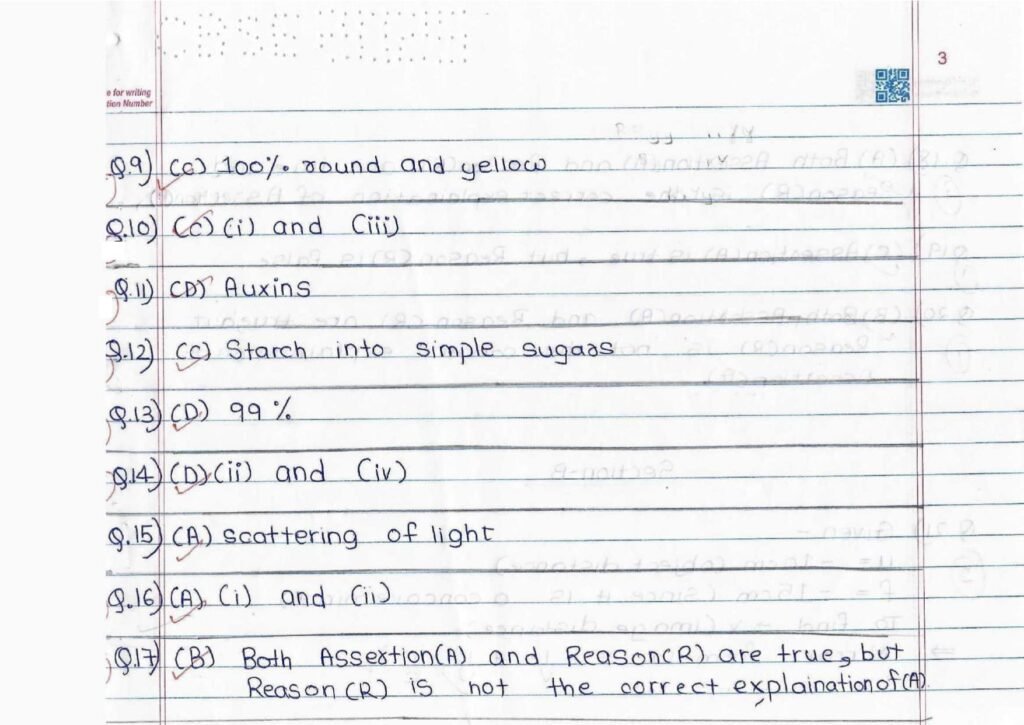 CBSE
3
e for writing
tion Number
Q.9) (C) 100% round and yellow
Q.10) (C) (i) and (iii)
Q.11) (D) Auxins
Q.12) (C) Starch into simple sugars
Q.13) (D) 99 %
Q.14) (D) (ii) and (iv)
Q.15) (A) scattering of light
Q.16) (A) (i) and (ii)
Q.17) (B) Both Assertion(A) and Reason(R) are true, but
Reason (R) is not the correct explaination of (A)